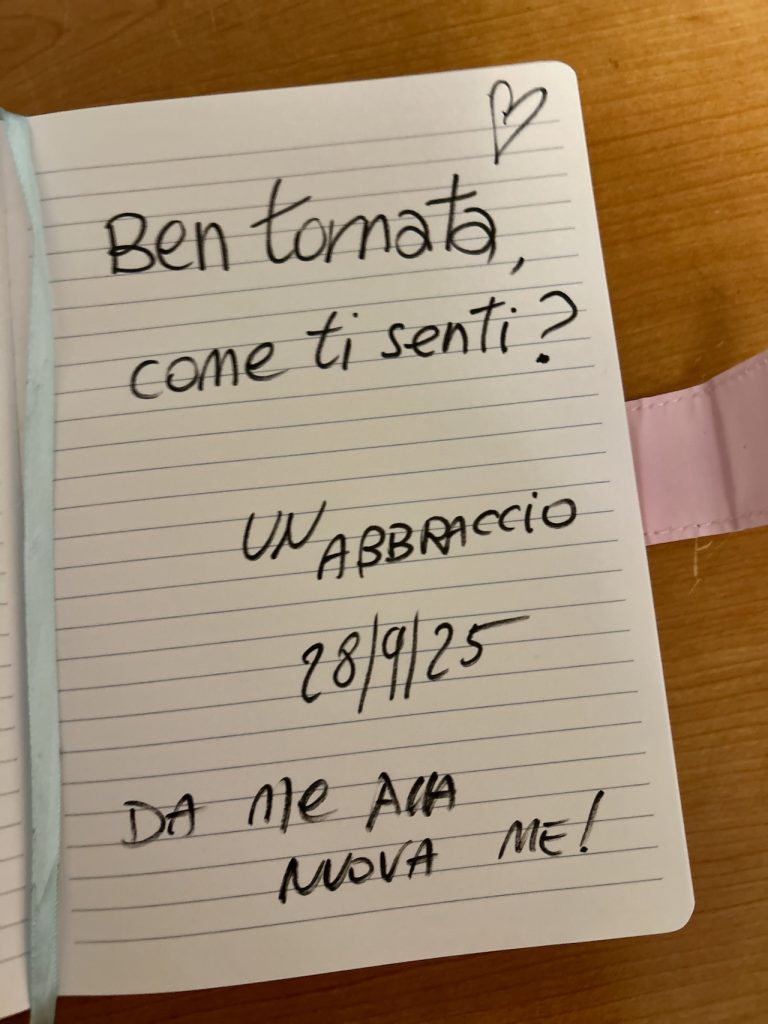 Ben tornata,
come ti senti?
UN ABBRACCIO
28/9/25
DA ME ALLA
NUOVA ME!